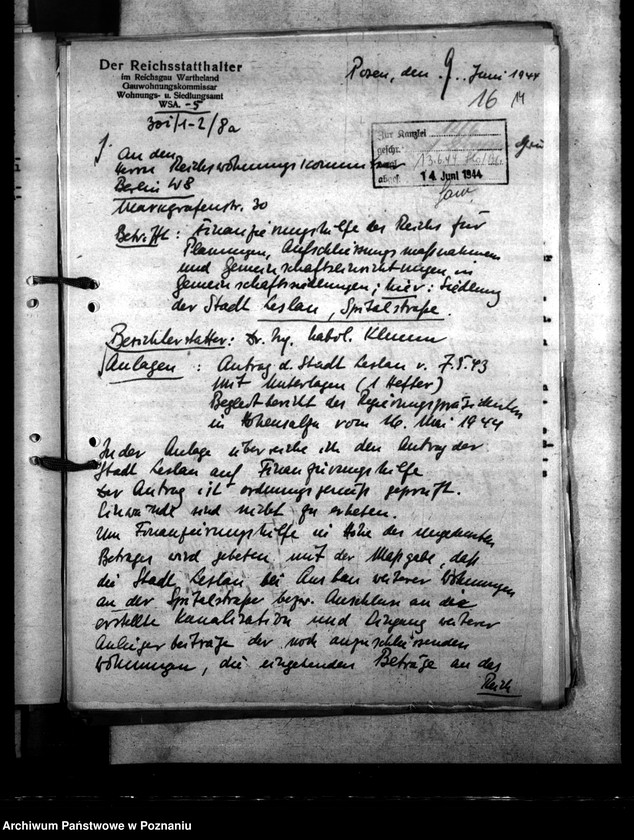 Der Reichsstatthalter
im Reichsgau Wartheland
Gauwohnungskommissar
Wohnungs- u. Siedlungsamt
WSA. -5
301/1-2/8a
Posen, den 9. Juni 1944
16
Zur Kanzlei
geschr.
13.6.44
abges. 14 Juni 1944
1. An den
Herrn Reichswohnungskommissar
Berlin W8
Markgrafenstr. 30
Betrifft: Finanzierungshilfe des Reichs für
Planungen, Aufschliessungsmaßnahmen
und Gemeinschaftseinrichtungen in
Gemeinschaftssiedlungen; hier: Siedlung
der Stadt Leslau, Spitalstraße.
Berichterstatter: Dr. Ing. habil. Klemm
Anlagen: Antrag d. Stadt Leslau v. 7.5.43
mit Unterlagen (1 Hefter)
Begleitbericht des Regierungspräsidenten
in Hohensalza vom 16. Mai 1944
In der Anlage überreiche ich den Antrag der
Stadt Leslau auf Finanzierungshilfe
Der Antrag ist ordnungsgemäß geprüft.
Einwände sind nicht zu erheben.
Um Finanzierungshilfe in Höhe des
Betrages wird gebeten mit der Maßgabe, daß
die Stadt Leslau bei Ausbau weiterer Wohnungen
an der Spitalstraße bezw. Anschluss an die
erstellte Kanalisation und Eingang weiterer
Anliegerbeiträge der noch anzuschliessenden
Wohnungen, die eingehenden Beträge an das
Reich
Archiwum Państwowe w Poznaniu